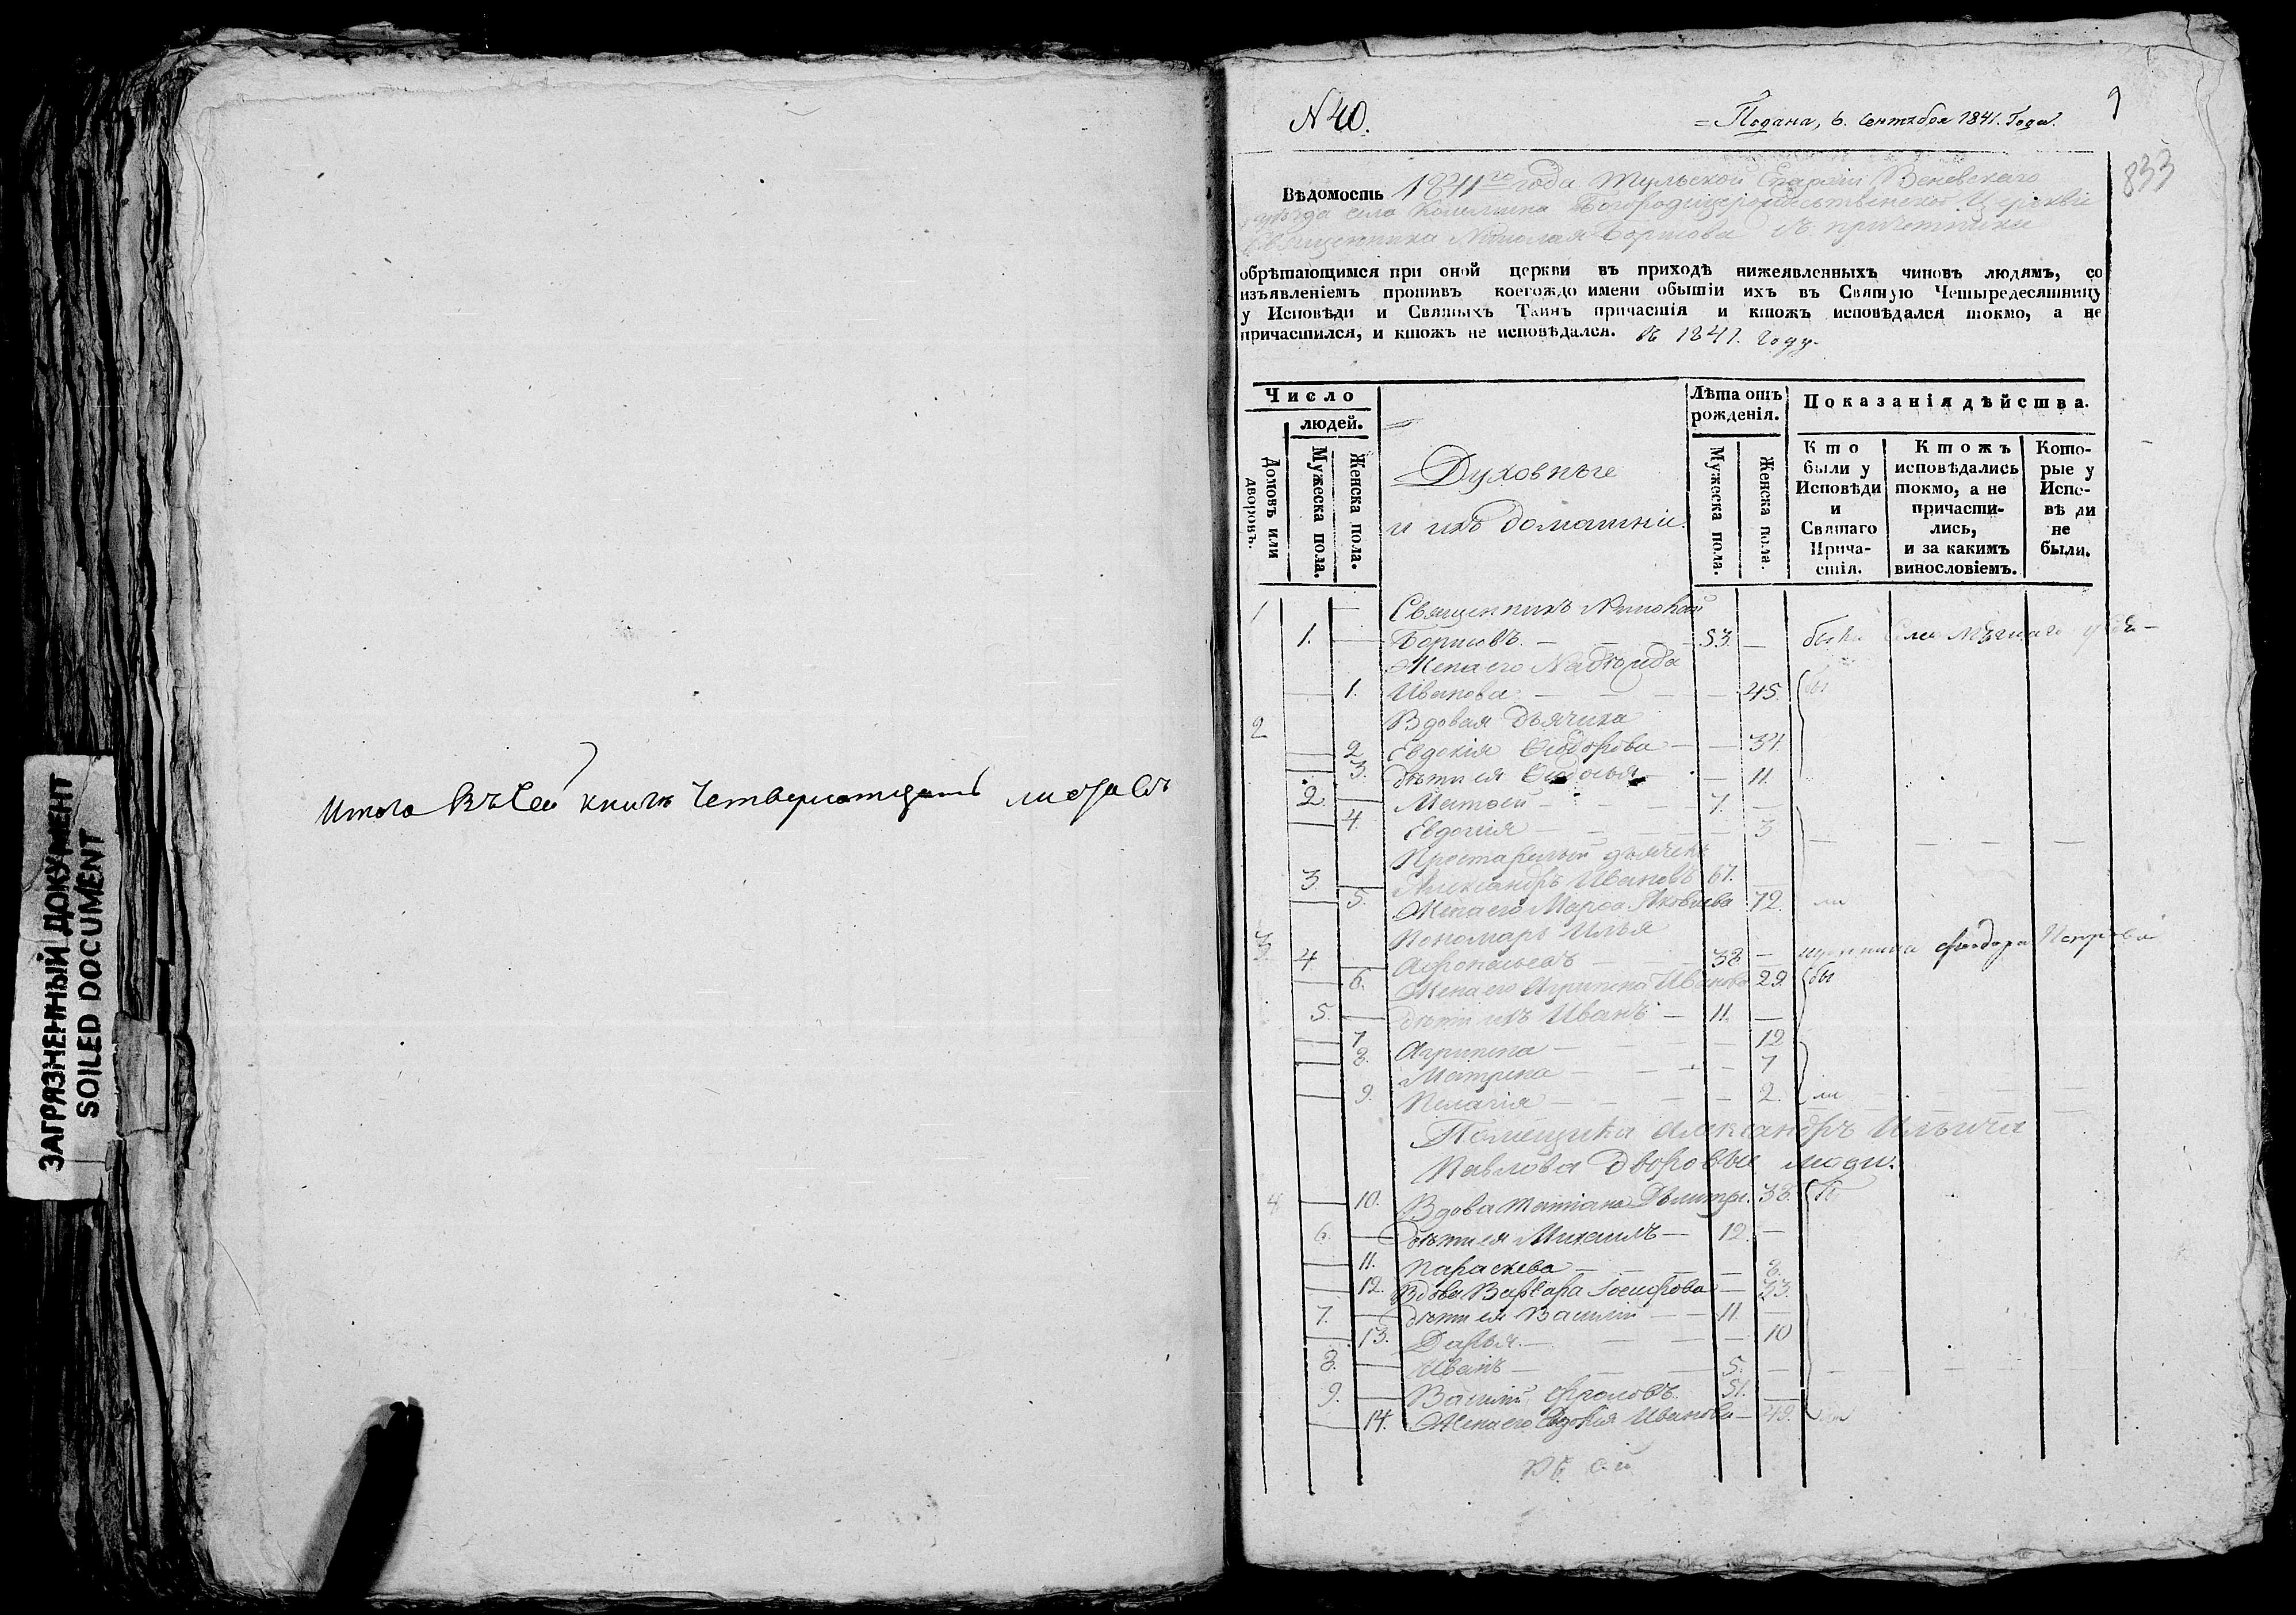 ЗАГРЯЗНЕННЫЙ ДОКУМЕНТ
SOILED DOCUMENT
Итого Въ сей книге листовъ
N 40.
= Подана, 6. Сентября 1841. Года.
833
Вѣдомость 1841го года Тульской Епархіи Веневскаго
уѣзда села Богородицерождественской Церкви
Священника Николая Борисова съ причетники
обрѣтающимся при оной церкви въ приходѣ нижеявленныхъ чиновъ людямъ, со
изъявленіемъ противъ коегождо имени обытіи ихъ въ Святую Четыредесятницу
у Исповѣди и Святыхъ Таинъ причастія и ктожъ исповѣдался токмо, а не
причастился, и ктожъ не исповѣдался. въ 1841. году.
Число
людей.
Домовъ или дворовъ.
Мужеска пола.
Женска пола.
Духовные
и ихъ домашніи.
Лѣта отъ рожденія.
Мужеска пола.
Женска пола.
Показанія дѣйства.
Кто были у Исповѣди и Святаго Прича-стія.
Ктожъ исповѣдались токмо, а не причасти-лись, и за какимъ винословіемъ.
Кото-рые у Испо-вѣди не были.
1 Священникъ Николай
1. Борисовъ. 53.
Жена его Надежда
1. Иванова 45.
2 Вдовая дьячиха
2. Евдокія Ѳеодорова 34.
3. дѣти ея 11.
2. Матвей 7.
4. Евдокія 3
Престарелый дьячекъ
3. Александръ Ивановъ 67.
5. Жена его Марѳа Яковлева 72.
3 Пономарь Илья
4 38 Феодора Петрова
6. Жена его Агрипена Иванова 29. бы
5. дѣти ихъ Иванъ 11.
7. Агрипена 12
8. Матрена 7
9. Пелагія 2. ли
Помещика Александръ Ильича
Павлова Дворовые люди.
4 10. Вдова Татіана Дьмитр. 38.
6. дѣти ея Михаилъ 12.
11. Параскева 8.
12. Вдова Варвара Іосифова 33.
7. дѣти ея Василій 11.
13. Дарья. 10
8. Иванъ 5.
9. Василій Фроловъ. 51.
14. Жена его Евдокія Иванова 49.